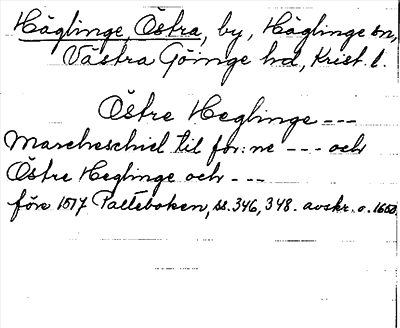 Häglinge, Östra, by, Häglinge sn,
Västra Göinge hd, Krist. l.
Östre Heglinge ---
Marcheschiel til for:ne --- och
Östre Heglinge och ---
före 1517 Palteboken, ss. 346, 348. avskr. o. 1650.